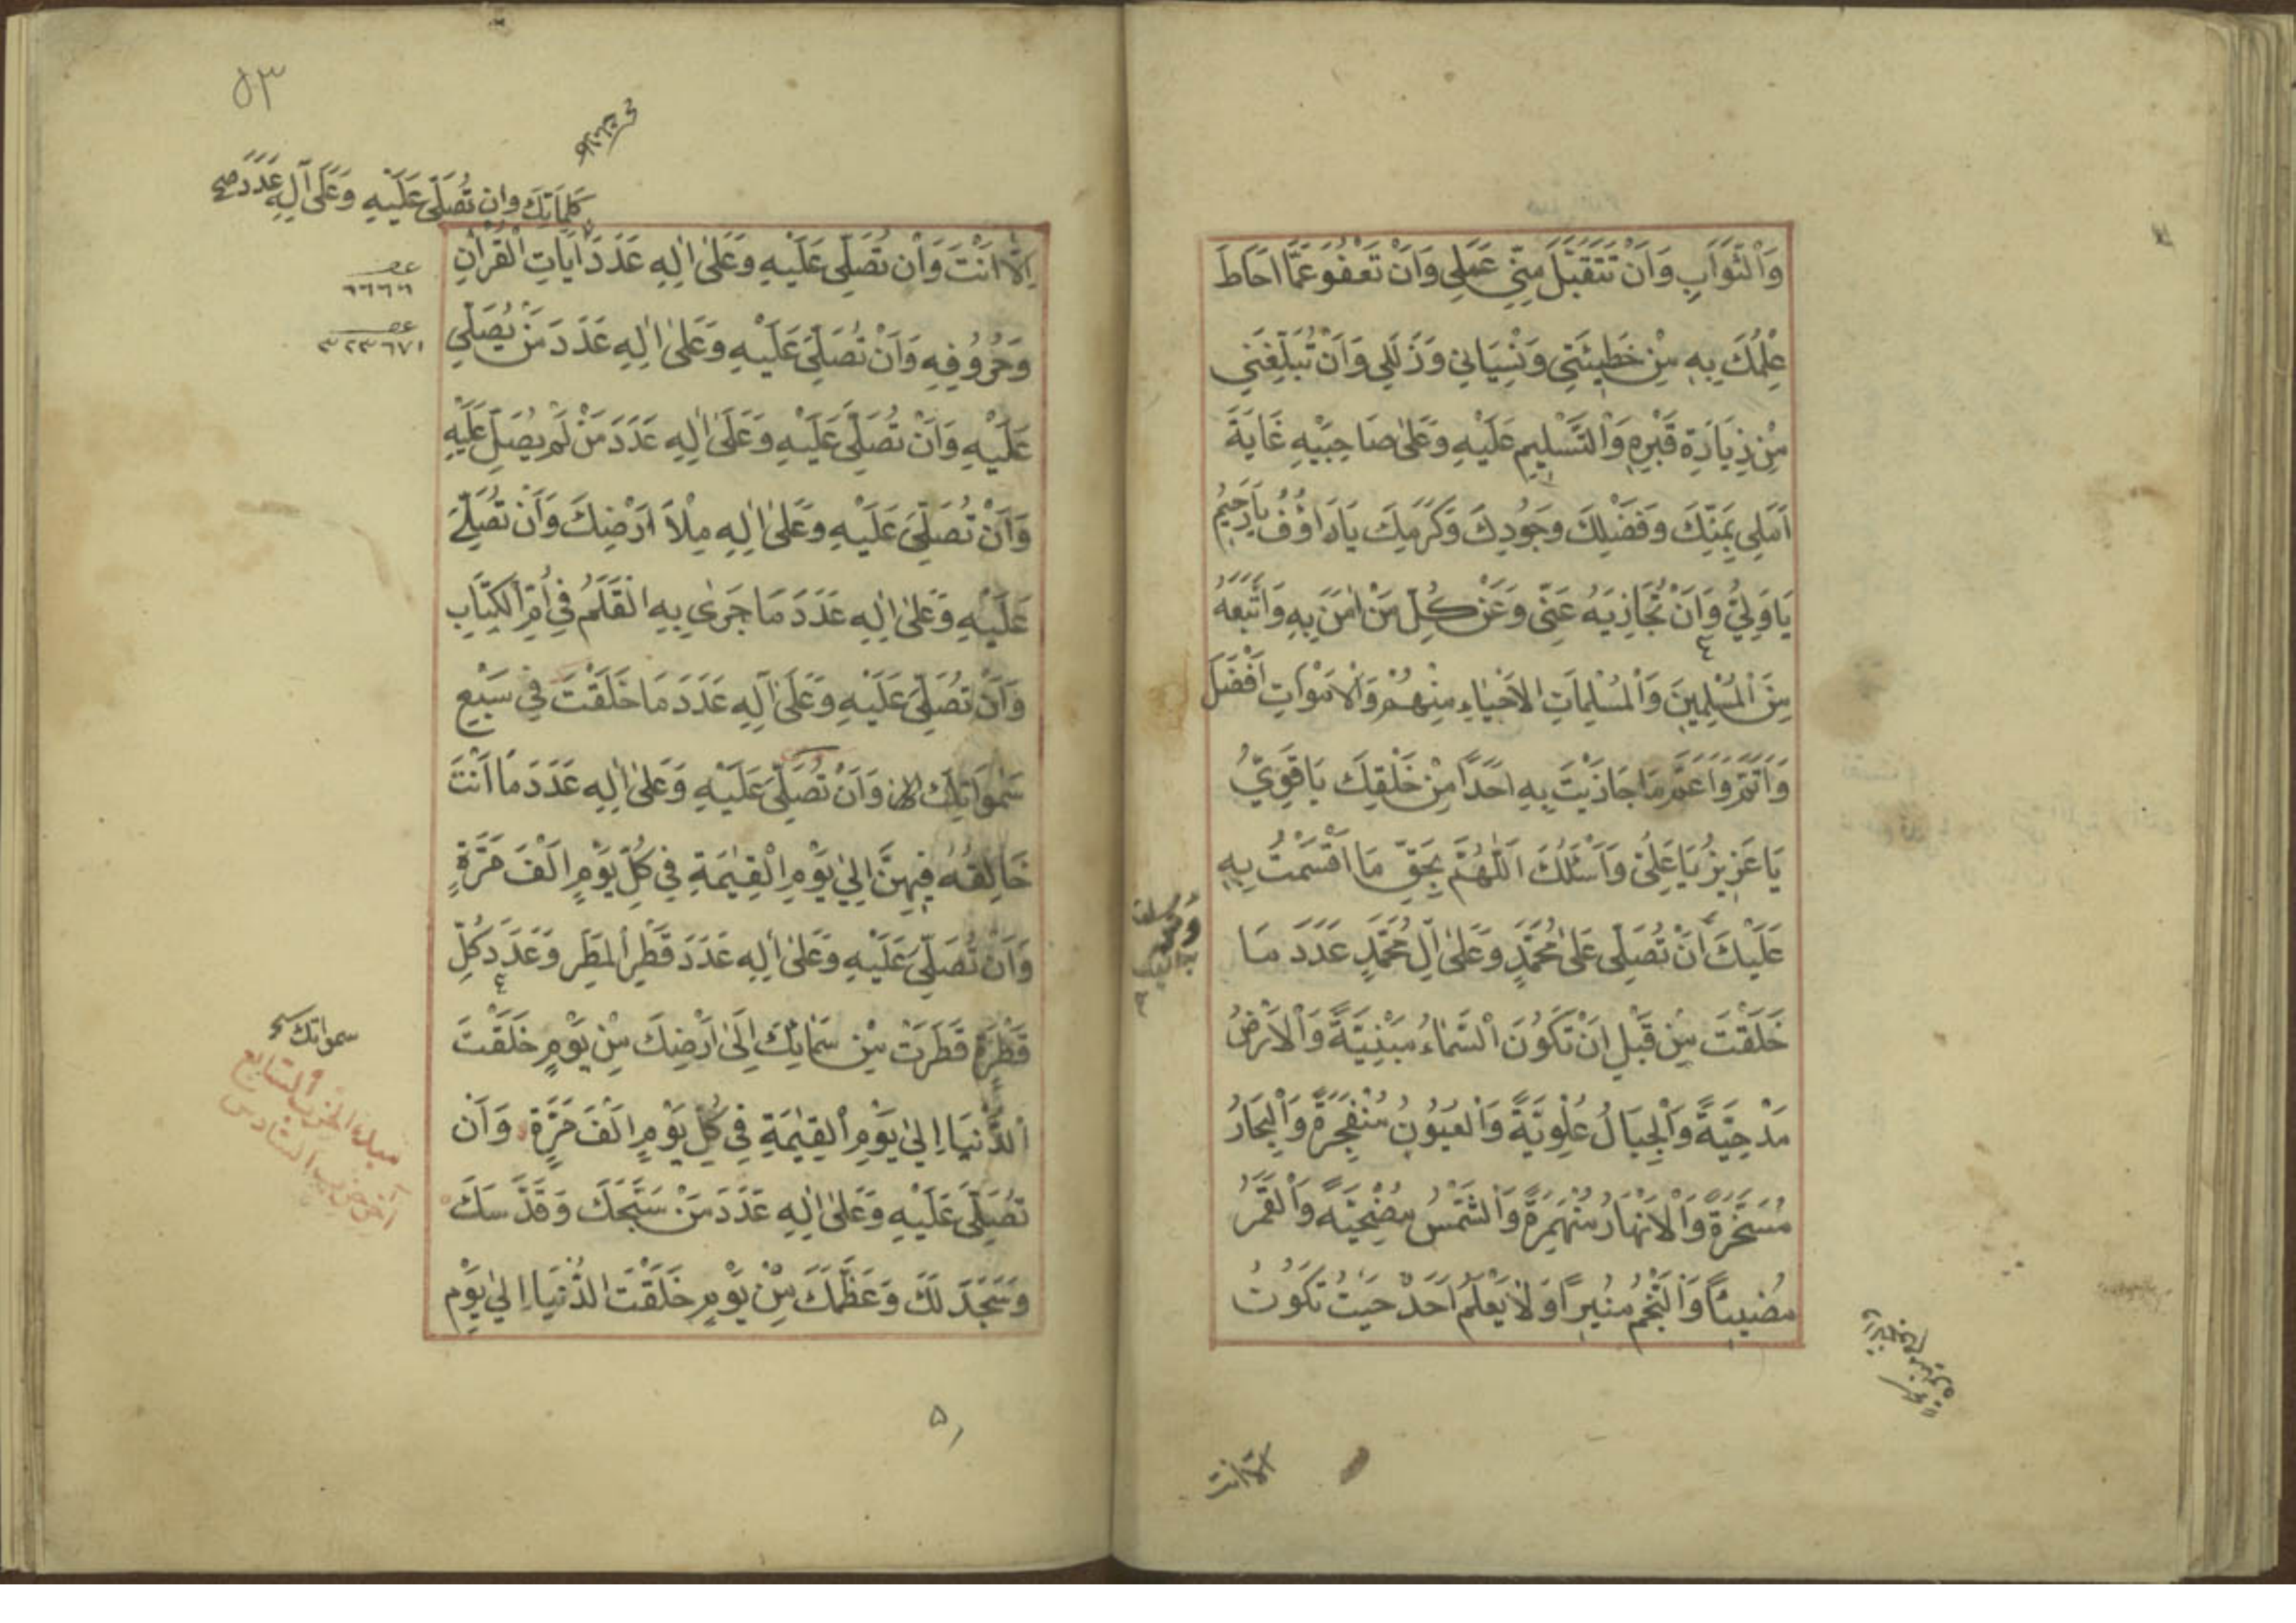 وَالثَّوَابِ وَاَنْ تَتَقَبَّلَ مِنِّي عَمَلِي وَاَنْ تَعْفُوَ عَمَّا اَحَاطَ
عِلْمُكَ بِهِ مِنْ خَطِيئَتِي وَنِسْيَانِي وَزَلَلِي وَاَنْ تُبَلِّغَنِي
مِنْ زِيَارَةِ قَبْرِهِ وَالتَّسْلِيمِ عَلَيْهِ وَعَلَى صَاحِبَيْهِ غَايَةَ
اَمَلِي بِمَنِّكَ وَفَضْلِكَ وَجُودِكَ وَكَرَمِكَ يَا رَاؤُفُ يَا رَحِيمُ
يَا وَلِيُّ وَاَنْ تُجَازِيَهُ عَنِّي وَعَنْ كُلِّ مَنْ اٰمَنَ بِهِ وَاتَّبَعَهُ
مِنَ الْمُسْلِمِينَ وَالْمُسْلِمَاتِ الْاَحْيَاءِ مِنْهُمْ وَالْاَمْوَاتِ اَفْضَلَ
وَاَتَمَّ وَاَعَمَّ مَا جَازَيْتَ بِهِ اَحَدًا مِنْ خَلْقِكَ يَا قَوِيُّ
يَا عَزِيزُ يَا عَلِيُّ وَاَسْئَلُكَ اَللّٰهُمَّ بِحَقِّ مَا اَقْسَمْتُ بِهِ
عَلَيْكَ اَنْ تُصَلِّيَ عَلَى مُحَمَّدٍ وَعَلَى اٰلِ مُحَمَّدٍ عَدَدَ مَا
خَلَقْتَ مِنْ قَبْلِ اَنْ تَكُونَ السَّمَاءُ مَبْنِيَّةً وَالْاَرْضُ
مَدْحِيَّةً وَالْجِبَالُ عُلْوِيَّةً وَالْعُيُونُ مُنْفَجِرَةً وَالْبِحَارُ
مُسَخَّرَةً وَالْاَنْهَارُ مُنْهَمِرَةً وَالشَّمْسُ مُضْحِيَةً وَالْقَمَرُ
مُضِيئًا وَالنَّجْمُ مُنِيرًا وَلَا يَعْلَمُ اَحَدٌ حَيْثُ تَكُونُ
الا انت
٥٣
كَلِمَاتِكَ وان تُصَلِّيَ عَلَيْهِ وَعَلَى آلِهِ عَدَدَ صح
اِلَّا اَنْتَ وَاَنْ تُصَلِّيَ عَلَيْهِ وَعَلَى اٰلِهِ عَدَدَ اٰيَاتِ الْقُرْاٰنِ
٦٦٦٦
وَحُرُوفِهِ وَاَنْ تُصَلِّيَ عَلَيْهِ وَعَلَى اٰلِهِ عَدَدَ مَنْ يُصَلِّي
٣٢٣٦٧١
عَلَيْهِ وَاَنْ تُصَلِّيَ عَلَيْهِ وَعَلَى اٰلِهِ عَدَدَ مَنْ لَمْ يُصَلِّ عَلَيْهِ
وَاَنْ تُصَلِّيَ عَلَيْهِ وَعَلَى اٰلِهِ مِلْاَ اَرْضِكَ وَاَنْ تُصَلِّيَ
عَلَيْهِ وَعَلَى اٰلِهِ عَدَدَ مَا جَرَى بِهِ الْقَلَمُ فِي اُمِّ الْكِتَابِ
وَاَنْ تُصَلِّيَ عَلَيْهِ وَعَلَى آلِهِ عَدَدَ مَا خَلَقْتَ فِي سَبْعِ
سَمٰوَاتِكَ وَاَنْ تُصَلِّيَ عَلَيْهِ وَعَلَى اٰلِهِ عَدَدَ مَا اَنْتَ
خَالِقُهُ فِيهِنَّ اِلَى يَوْمِ الْقِيٰمَةِ فِي كُلِّ يَوْمٍ اَلْفَ مَرَّةٍ
وَاَنْ تُصَلِّيَ عَلَيْهِ وَعَلَى اٰلِهِ عَدَدَ قَطْرِ الْمَطَرِ وَعَدَدَ كُلِّ
قَطْرَةٍ قَطَرَتْ مِنْ سَمَائِكَ اِلَى اَرْضِكَ مِنْ يَوْمِ خَلَقْتَ
سمواتك صح
الدُّنْيَا اِلَى يَوْمِ الْقِيٰمَةِ فِي كُلِّ يَوْمٍ اَلْفَ مَرَّةٍ وَاَنْ
مبدء الحزب السابع
آخر حزب السادس
تُصَلِّيَ عَلَيْهِ وَعَلَى اٰلِهِ عَدَدَ مَنْ سَبَّحَكَ وَقَدَّسَكَ
وَسَجَدَ لَكَ وَعَظَّمَكَ مِنْ يَوْمِ خَلَقْتَ الدُّنْيَا اِلَى يَوْمِ